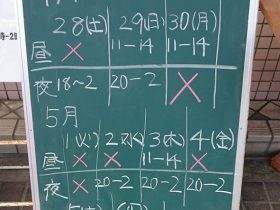 28(土) 29(日) 30(月)
昼 × 11-14 11-14
夜 18~2 20-2 ×
5月
1(火) 2(水) 3(木) 4(金)
昼 × × 11-14 ×
夜 × 20-2 20-2 20-2